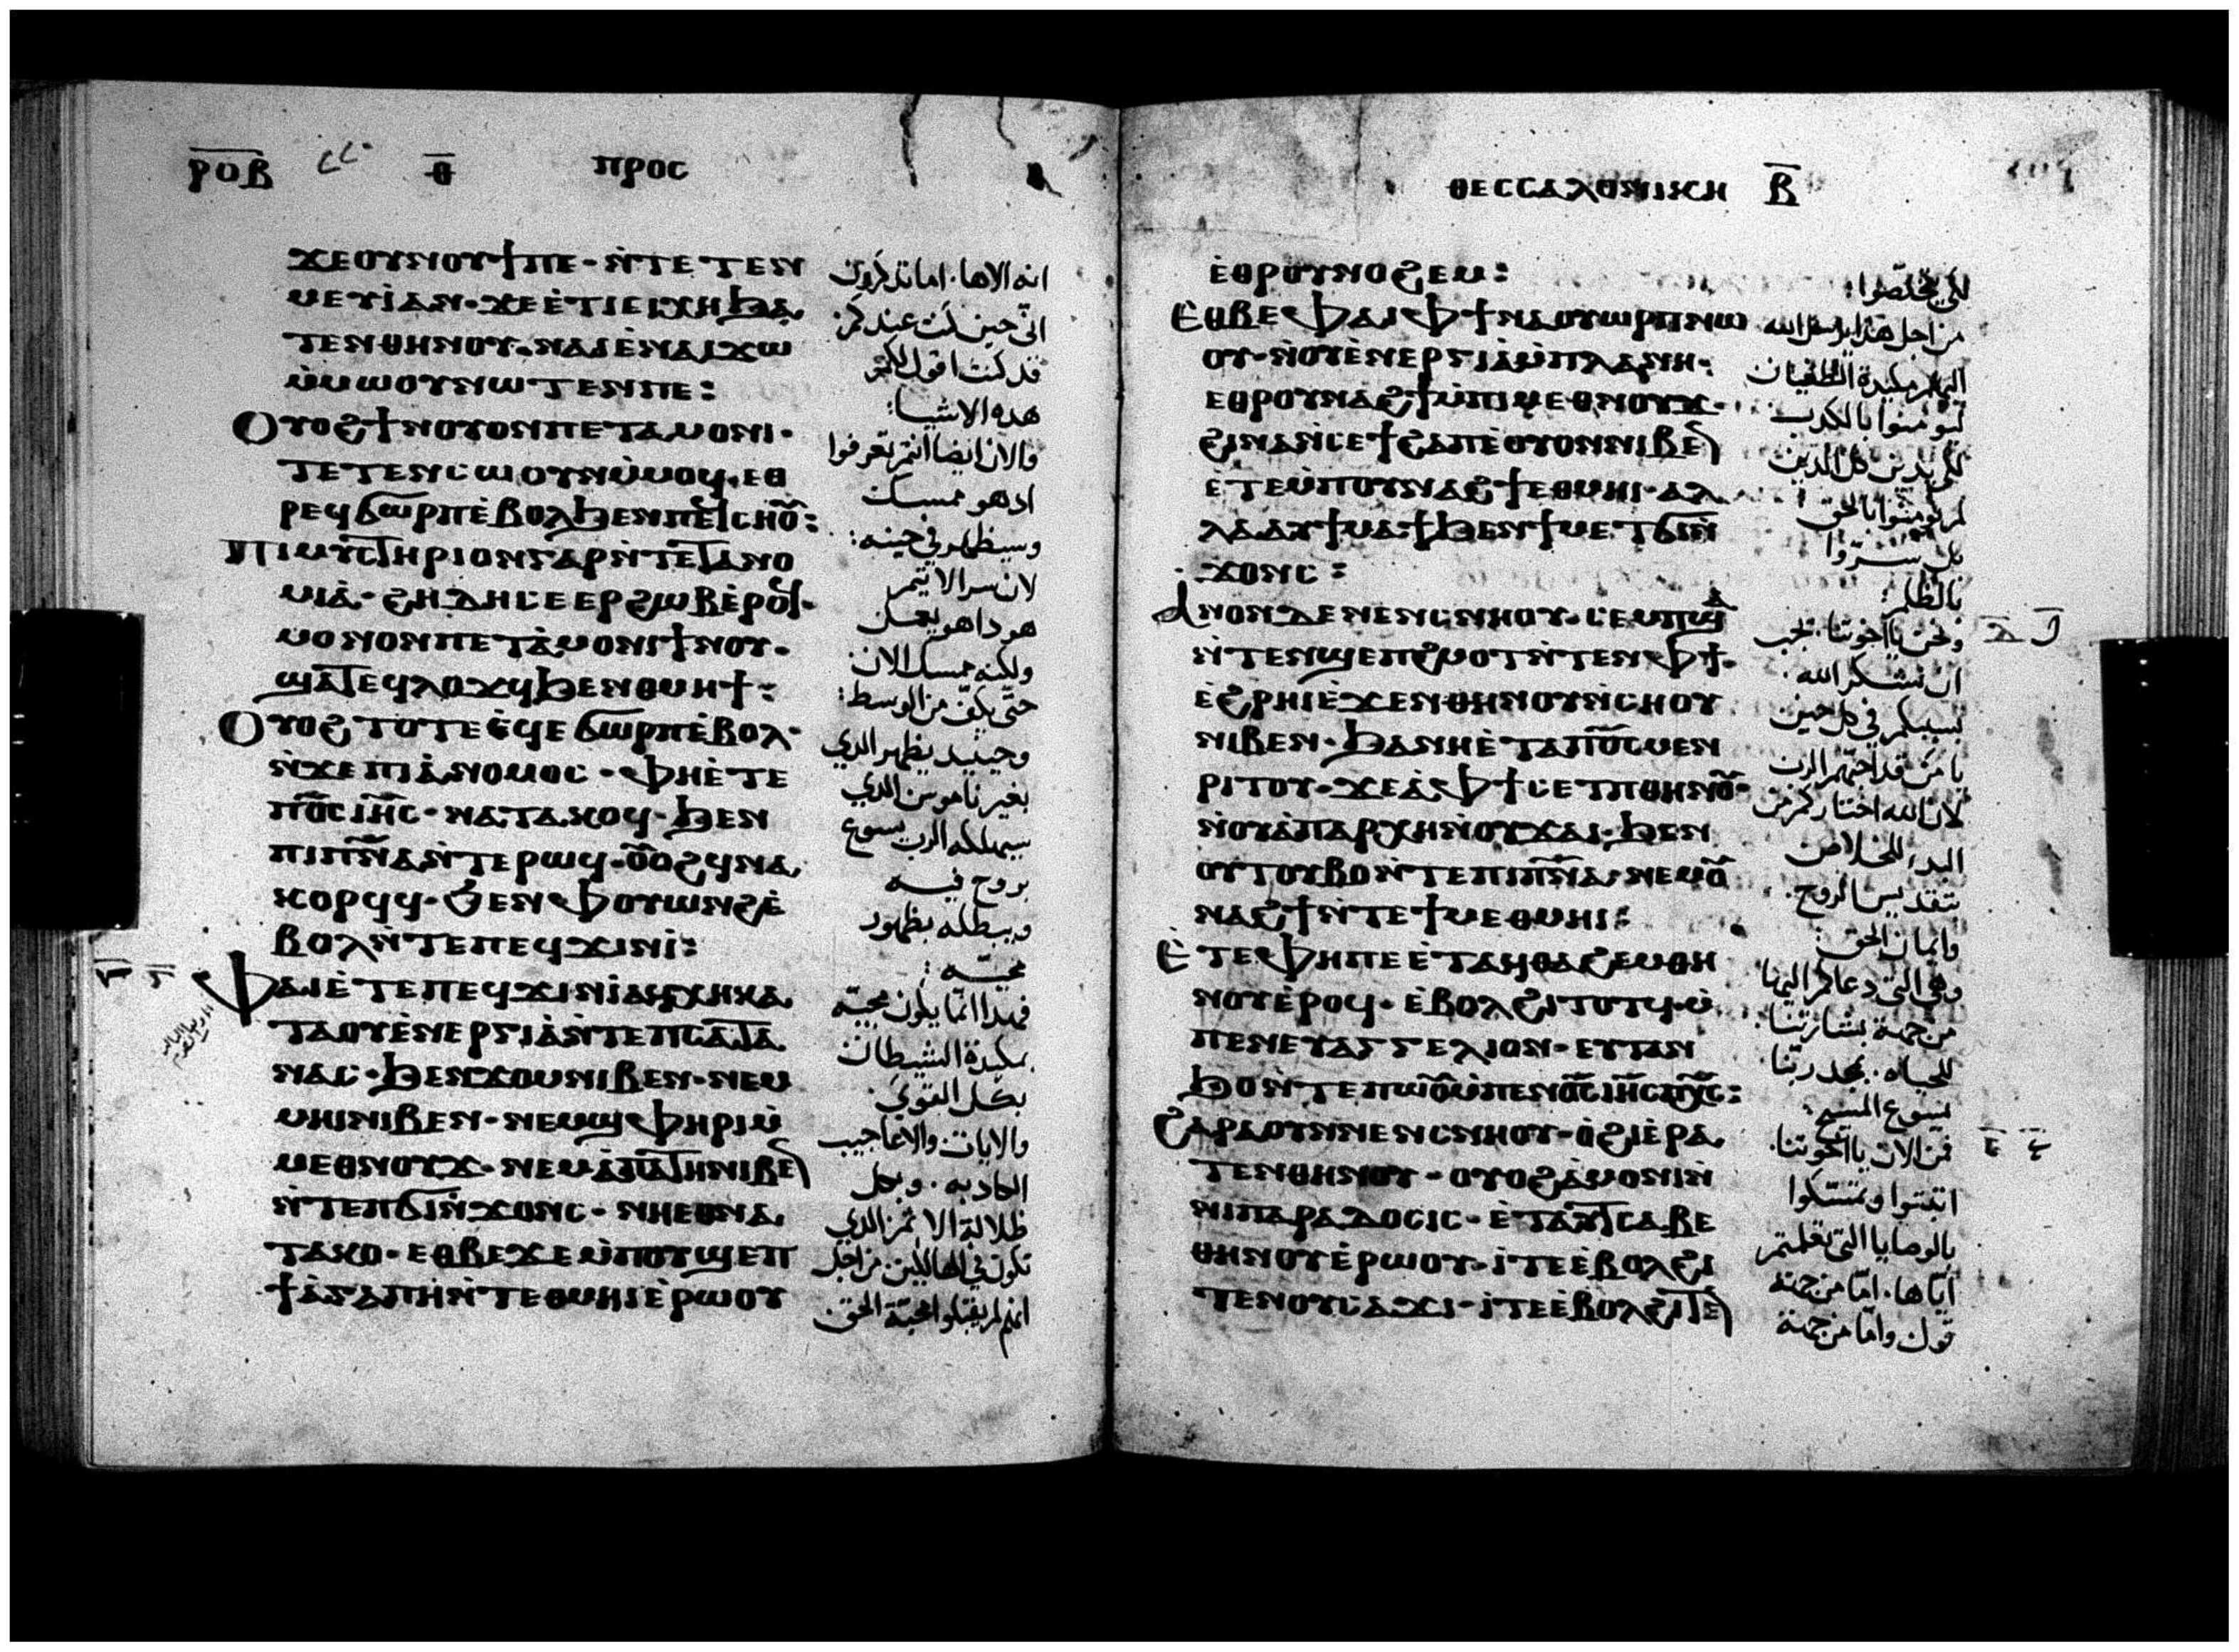 ⲣⲟⲃ ⲑ ⲡⲣⲟⲥ
ϫⲉⲟⲩⲛⲟⲩϯⲡⲉ· ⲛ̀ⲧⲉⲧⲉⲛ
ⲙⲉⲩⲓ̀ⲁⲛ· ϫⲉⲉ̀ⲧⲓⲉⲓⲭⲏϧⲁ
ⲧⲉⲛⲑⲏⲛⲟⲩ· ⲛⲁⲓⲉ̀ⲛⲁⲓϫⲱ
ⲙ̀ⲙⲱⲟⲩⲛⲱⲧⲉⲛⲡⲉ:
Ⲟⲩⲟϩϯⲛⲟⲩⲟⲛⲡⲉⲧⲁⲙⲟⲛⲓ·
ⲧⲉⲧⲉⲛⲥⲱⲟⲩⲛⲙ̀ⲙⲟϥ· ⲉⲑ
ⲣⲉϥϭⲱⲣⲡⲉ̀ⲃⲟⲗϧⲉⲛⲡⲉϥⲥⲏⲟⲩ:
Ⲡⲓⲙⲩⲥⲧⲏⲣⲓⲟⲛⲅⲁⲣⲛ̀ⲧⲉϯⲁⲛⲟ
ⲙⲓⲁ̀· ϩⲏⲇⲏⲥⲉⲉⲣϩⲱⲃⲉ̀ⲣⲟϥ·
ⲙⲟⲛⲟⲛⲡⲉⲧⲁ̀ⲙⲟⲛⲓϯⲛⲟⲩ·
ϣⲁⲧⲉϥⲗⲟϫϥϧⲉⲛⲑⲙⲏϯ:
Ⲟⲩⲟϩⲧⲟⲧⲉⲉ̀ϥⲉϭⲱⲣⲡⲉ̀ⲃⲟⲗ·
ⲛ̀ϫⲉⲡⲓⲁ̀ⲛⲟⲙⲟⲥ· ⲫⲏⲉ̀ⲧⲉ
ⲡⲟ̅ⲥ̅ⲓⲏ̅ⲥ̅· ⲛⲁⲧⲁⲕⲟϥ· ϧⲉⲛ
ⲡⲓⲡⲛ̅ⲁⲛ̀ⲧⲉⲣⲱϥ· ⲟⲩⲟϩϥⲛⲁ
ⲕⲟⲣϥϥ· ϧⲉⲛⲫⲟⲩⲱⲛϩⲉ̀
ⲃⲟⲗⲛ̀ⲧⲉⲡⲉϥϫⲓⲛⲓ̀:
Ⲫⲁⲓⲉ̀ⲧⲉⲡⲉϥϫⲓⲛⲓ̀ⲁϥⲭⲏⲕⲁ
ⲧⲁⲟⲩⲉ̀ⲛⲉⲣⲅⲓⲁ̀ⲛ̀ⲧⲉⲡⲥⲁⲧⲁ
ⲛⲁⲥ· ϧⲉⲛϫⲟⲙⲛⲓⲃⲉⲛ· ⲛⲉⲙ
ⲙⲏⲓⲛⲓⲃⲉⲛ· ⲛⲉⲙϣⲫⲏⲣⲓⲙ̀
ⲙⲉⲑⲛⲟⲩϫ· ⲛⲉⲙⲁ̀ⲡⲁⲧⲏⲛⲓⲃⲉⲛ
ⲛ̀ⲧⲉⲡϭⲓⲛ̀ϫⲟⲛⲥ· ⲛⲏⲉⲑⲛⲁ
ⲧⲁⲕⲟ· ⲉⲑⲃⲉϫⲉⲙ̀ⲡⲟⲩϣⲉⲡ
ϯⲁ̀ⲅⲁⲡⲏⲛ̀ⲧⲉⲑⲙⲏⲓⲉ̀ⲣⲱⲟⲩ
انه الاها· اما تذكرون
انّي حين كنت عندكم
قد كنت اقول لكم
هده الاشيا:
والان ايضا انتم تعرفوا
اذ هو ممسك
وسيظهر في حينه:
لان سر الاثم
هو دا هو يعمل
ولكنه ممسك الان
حتّي يكفّ من الوسط:
وحينيد يظهر الدي
بغير ناموس الدي
سيهلكه الرب يسوع
بروح فيه
ويبطله بظهور
مجيّه:
فهدا انّما يكون مجيّه
بمكيدة الشيطان
بكل القوي
والايات والاعاجيب
الكادبه· وبكل
ظلالة الاثم الدي
تكون في الهالكين من اجل
انهم لم يقبلوا محبّة الحق
ⲑⲉⲥⲥⲁⲗⲟⲛⲓⲕⲏ ⲃ
ⲉ̀ⲑⲣⲟⲩⲛⲟϩⲉⲙ:
Ⲉ̀ⲑⲃⲉⲫⲁⲓⲫϯⲛⲁⲟⲩⲱⲣⲡⲛⲱ
ⲟⲩ· ⲛ̀ⲟⲩⲉ̀ⲛⲉⲣⲅⲓⲁ̀ⲙ̀ⲡⲗⲁⲛⲏ·
ⲉⲑⲣⲟⲩⲛⲁϩϯⲙ̀ⲡⲓⲙⲉⲑⲛⲟⲩϫ·
ϩⲓⲛⲁⲛ̀ⲥⲉϯϩⲁⲡⲉ̀ⲟⲩⲟⲛⲛⲓⲃⲉⲛ
ⲉ̀ⲧⲉⲙ̀ⲡⲟⲩⲛⲁϩϯⲉⲑⲙⲏⲓ· ⲁⲗ
ⲗⲁⲁⲩϯⲙⲁϯϧⲉⲛϯⲙⲉⲧϭⲓⲛ̀
ϫⲟⲛⲥ:
Ⲁⲛⲟⲛⲇⲉⲛⲉⲛⲥⲛⲏⲟⲩ· ⲥⲉⲙⲡϣⲁ
ⲛ̀ⲧⲉⲛϣⲉⲡϩⲙⲟⲧⲛ̀ⲧⲉⲛⲫϯ·
ⲉ̀ϩⲣⲏⲓⲉ̀ϫⲉⲛⲑⲏⲛⲟⲩⲛ̀ⲥⲏⲟⲩ
ⲛⲓⲃⲉⲛ· ϧⲁⲛⲏⲉ̀ⲧⲁⲡⲟ̅ⲥ̅ⲙⲉⲛ
ⲣⲓⲧⲟⲩ· ϫⲉⲁ̀ⲫϯⲥⲉⲧⲡⲑⲏⲛⲟⲩ·
ⲛ̀ⲟⲩⲁ̀ⲡⲁⲣⲭⲏⲛ̀ⲟⲩϫⲁⲓ· ϧⲉⲛ
ⲟⲩⲧⲟⲩⲃⲟⲛ̀ⲧⲉⲡⲓⲡⲛ̅ⲁ· ⲛⲉⲙⲟⲩ
ⲛⲁϩϯⲛ̀ⲧⲉϯⲙⲉⲑⲙⲏⲓ:
Ⲉ̀ⲧⲉⲫⲏⲡⲉⲉ̀ⲧⲁϥⲑⲁϩⲉⲙⲑⲏ
ⲛⲟⲩⲉ̀ⲣⲟϥ· ⲉ̀ⲃⲟⲗϩⲓⲧⲟⲧϥ·ⲙ̀
ⲡⲉⲛⲉⲩⲁⲅⲅⲉⲗⲓⲟⲛ· ⲉⲩⲧⲁⲛ
ϧⲟⲛ̀ⲧⲉⲡⲱⲟⲩⲙ̀ⲡⲉⲛⲟ̅ⲥ̅ⲓⲏ̅ⲥ̅ⲡⲭ̅ⲥ̅:
Ϩⲁⲣⲁⲟⲩⲛⲛⲉⲛⲥⲛⲏⲟⲩ· ⲟ̀ϩⲓⲉ̀ⲣⲁ
ⲧⲉⲛⲑⲏⲛⲟⲩ· ⲟⲩⲟϩⲁ̀ⲙⲟⲛⲓⲛ̀
ⲛⲓⲡⲁⲣⲁⲇⲟⲥⲓⲥ· ⲉ̀ⲧⲁⲩⲧⲥⲁⲃⲉ
ⲑⲏⲛⲟⲩⲉ̀ⲣⲱⲟⲩ· ⲓ̀ⲧⲉⲉ̀ⲃⲟⲗϩⲓ
ⲧⲉⲛⲟⲩⲥⲁϫⲓ· ⲓ̀ⲧⲉⲉ̀ⲃⲟⲗϩⲓⲧⲉⲛ
لكي يخلصوا:
من اجل هدا يرسل الله
اليهم مكيدة الطغيان
ليؤمنوا بالكدب
لكي يدين كل الدين
لم يؤمنوا بالحق
بل سرّوا
بالظلم:
ونحن يا اخوتنا يجب
ان نشكر الله
بسببكم في كل حين
يا من قد احبّهم الرب
لان الله اختاركم من
البدء للخلاص
بتقديس الروح·
وايمان الحق:
وهي التي دعاكم اليها
من جهة بشارتنا·
للحياه· بمجد ربّنا
يسوع المسيح:
فمن الان يا اخوتنا·
اثبتوا وتمسّكوا
بالوصايا التي تعلمتم
ايّاها· امّا من جهة
قول وامّا من جهة